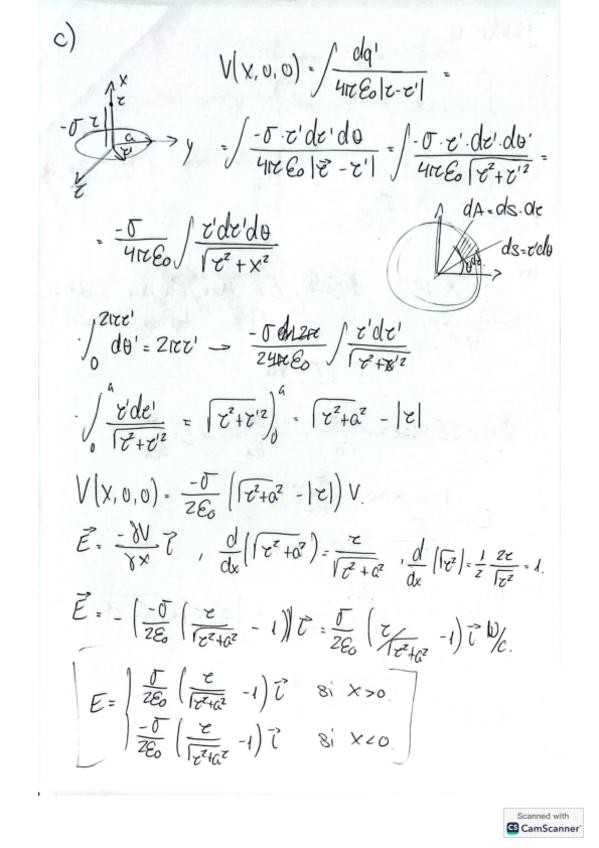 c)
V(x,0,0) = ∫ dq' / 4πε₀|r-r'| =
x
r
-σ r
a
r'
y
z
= ∫ -σ·r'dr'dθ / 4πε₀|r⃗ - r⃗'| = ∫ -σ·r'·dr'·dθ' / 4πε₀√(r²+r'²) =
dA = ds·dr
ds = r'dθ
= -σ/4πε₀ ∫ r'dr'dθ / √(r²+x²)
· ∫₀^2πr' dθ' = 2πr' → / ∫ r'dr' /
· ∫₀^a r'dr' / √(r²+r'²) = √(r²+r'²) )₀^a = √(r²+a²) - |r|
V(x,0,0) = -σ/2ε₀ (√(r²+a²) - |r|) V.
E⃗ = -γV/γx i⃗ , d/dx (√(r²+a²)) = r/√(r²+a²) , d/dx (√r²) = 1/2 2r/√r² = 1.
E⃗ = - (-σ/2ε₀ (r/√(r²+a²) - 1)) i⃗ = σ/2ε₀ (r/√(r²+a²) - 1) i⃗ N/C.
E = { σ/2ε₀ (r/√(r²+a²) - 1) i⃗ si x>0.
-σ/2ε₀ (r/√(r²+a²) - 1) i⃗ si x<0.
Scanned with
CS CamScanner